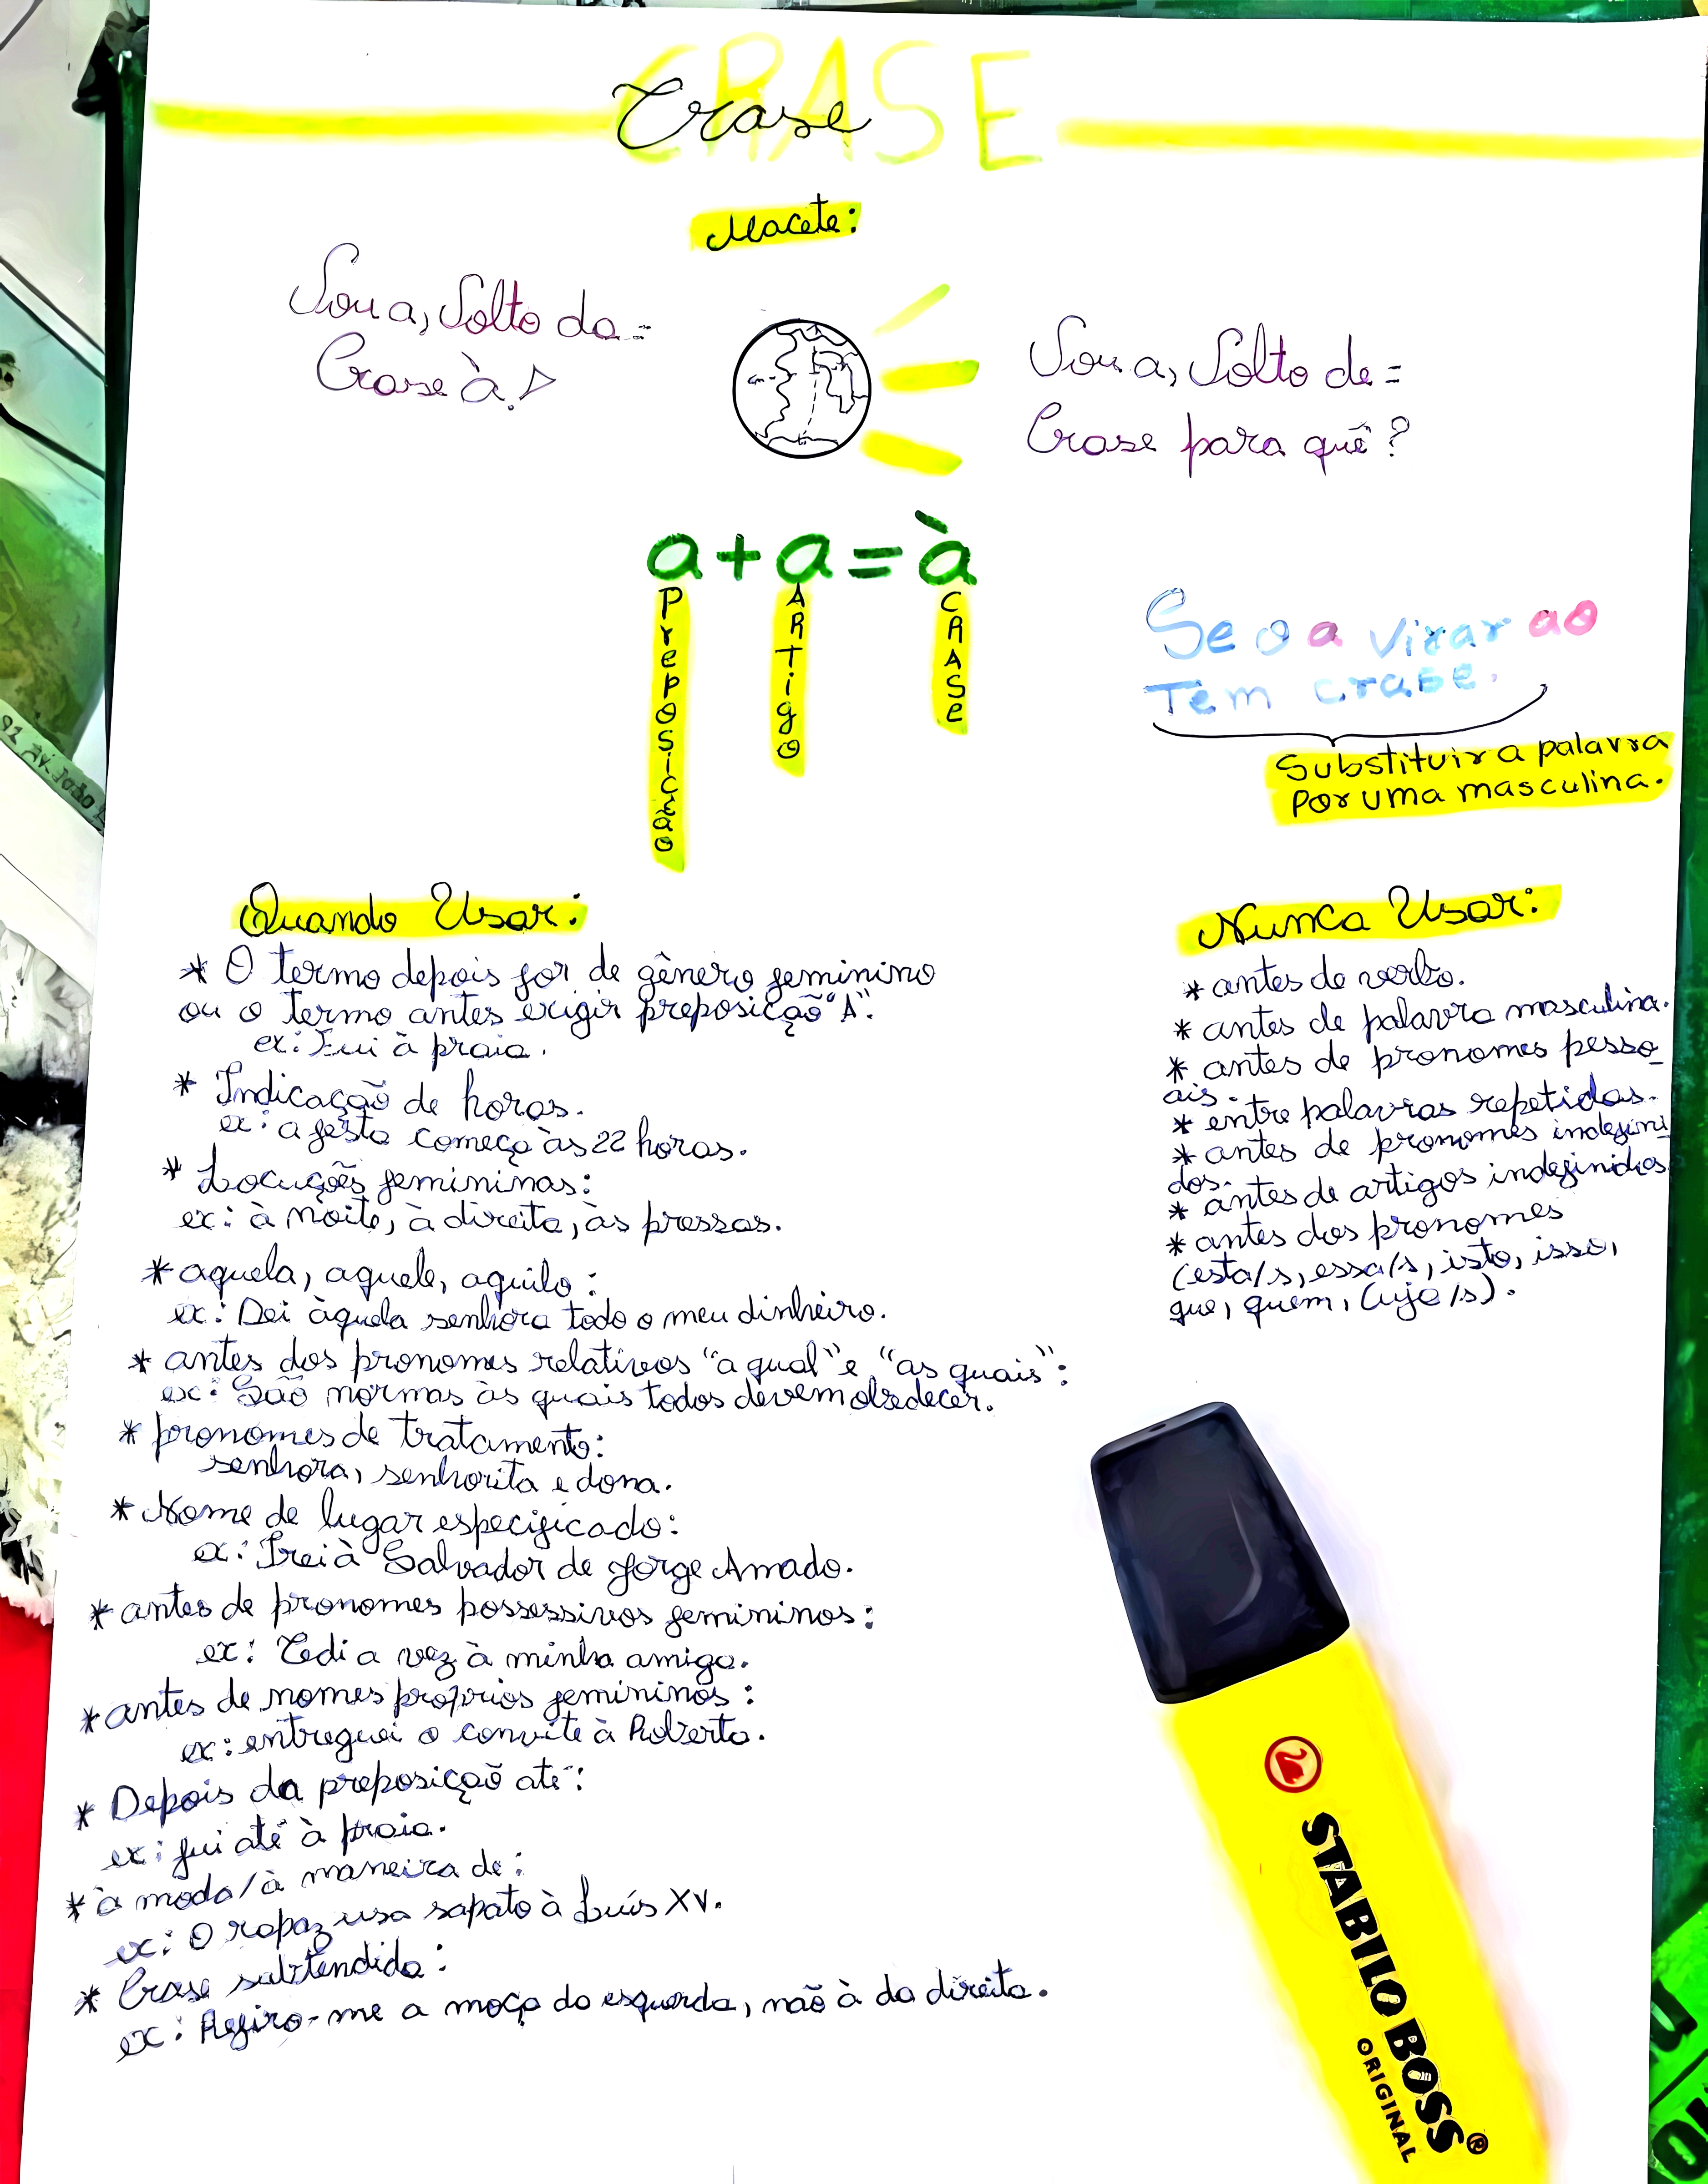 CRASE
Crase
Macete:
Vou a, Volto da =
Crase à!
Vou a, Volto de =
Crase para quê?
a + a = à
Preposição
ARTigo
CRASe
Se o a virar ao
Tem crase.
Substituir a palavra
por uma masculina.
Quando Usar:
* O termo depois for de gênero feminino
ou o termo antes exigir preposição "A".
ex: Fui à praia.
* Indicação de horas.
ex: a festa começa às 22 horas.
* Locuções femininas:
ex: à noite, à direita, às pressas.
* aquela, aquele, aquilo:
ex: Dei àquela senhora todo o meu dinheiro.
* antes dos pronomes relativos "a qual" e "as quais":
ex: São normas às quais todos devem obedecer.
* pronomes de tratamento:
senhora, senhorita e dona.
* Nome de lugar especificado:
ex: Irei à Salvador de Jorge Amado.
* antes de pronomes possessivos femininos:
ex: Cedi a vez à minha amiga.
* antes de nomes próprios femininos:
ex: entreguei o convite à Roberta.
* Depois da preposição até:
ex: fui até à praia.
* à moda/à maneira de:
ex: O rapaz usa sapato à Luís XV.
* Crase subtendida:
ex: Refiro-me a moça da esquerda, não à da direita.
Nunca Usar:
* antes de verbo.
* antes de palavra masculina.
* antes de pronomes pesso_
ais.
* entre palavras repetidas.
* antes de pronomes indefini_
dos.
* antes de artigos indefinidos
* antes dos pronomes
(esta/s, essa/s, isto, isso,
que, quem, cuja/s).
STABILO BOSS®
ORIGINAL
92 AV. João